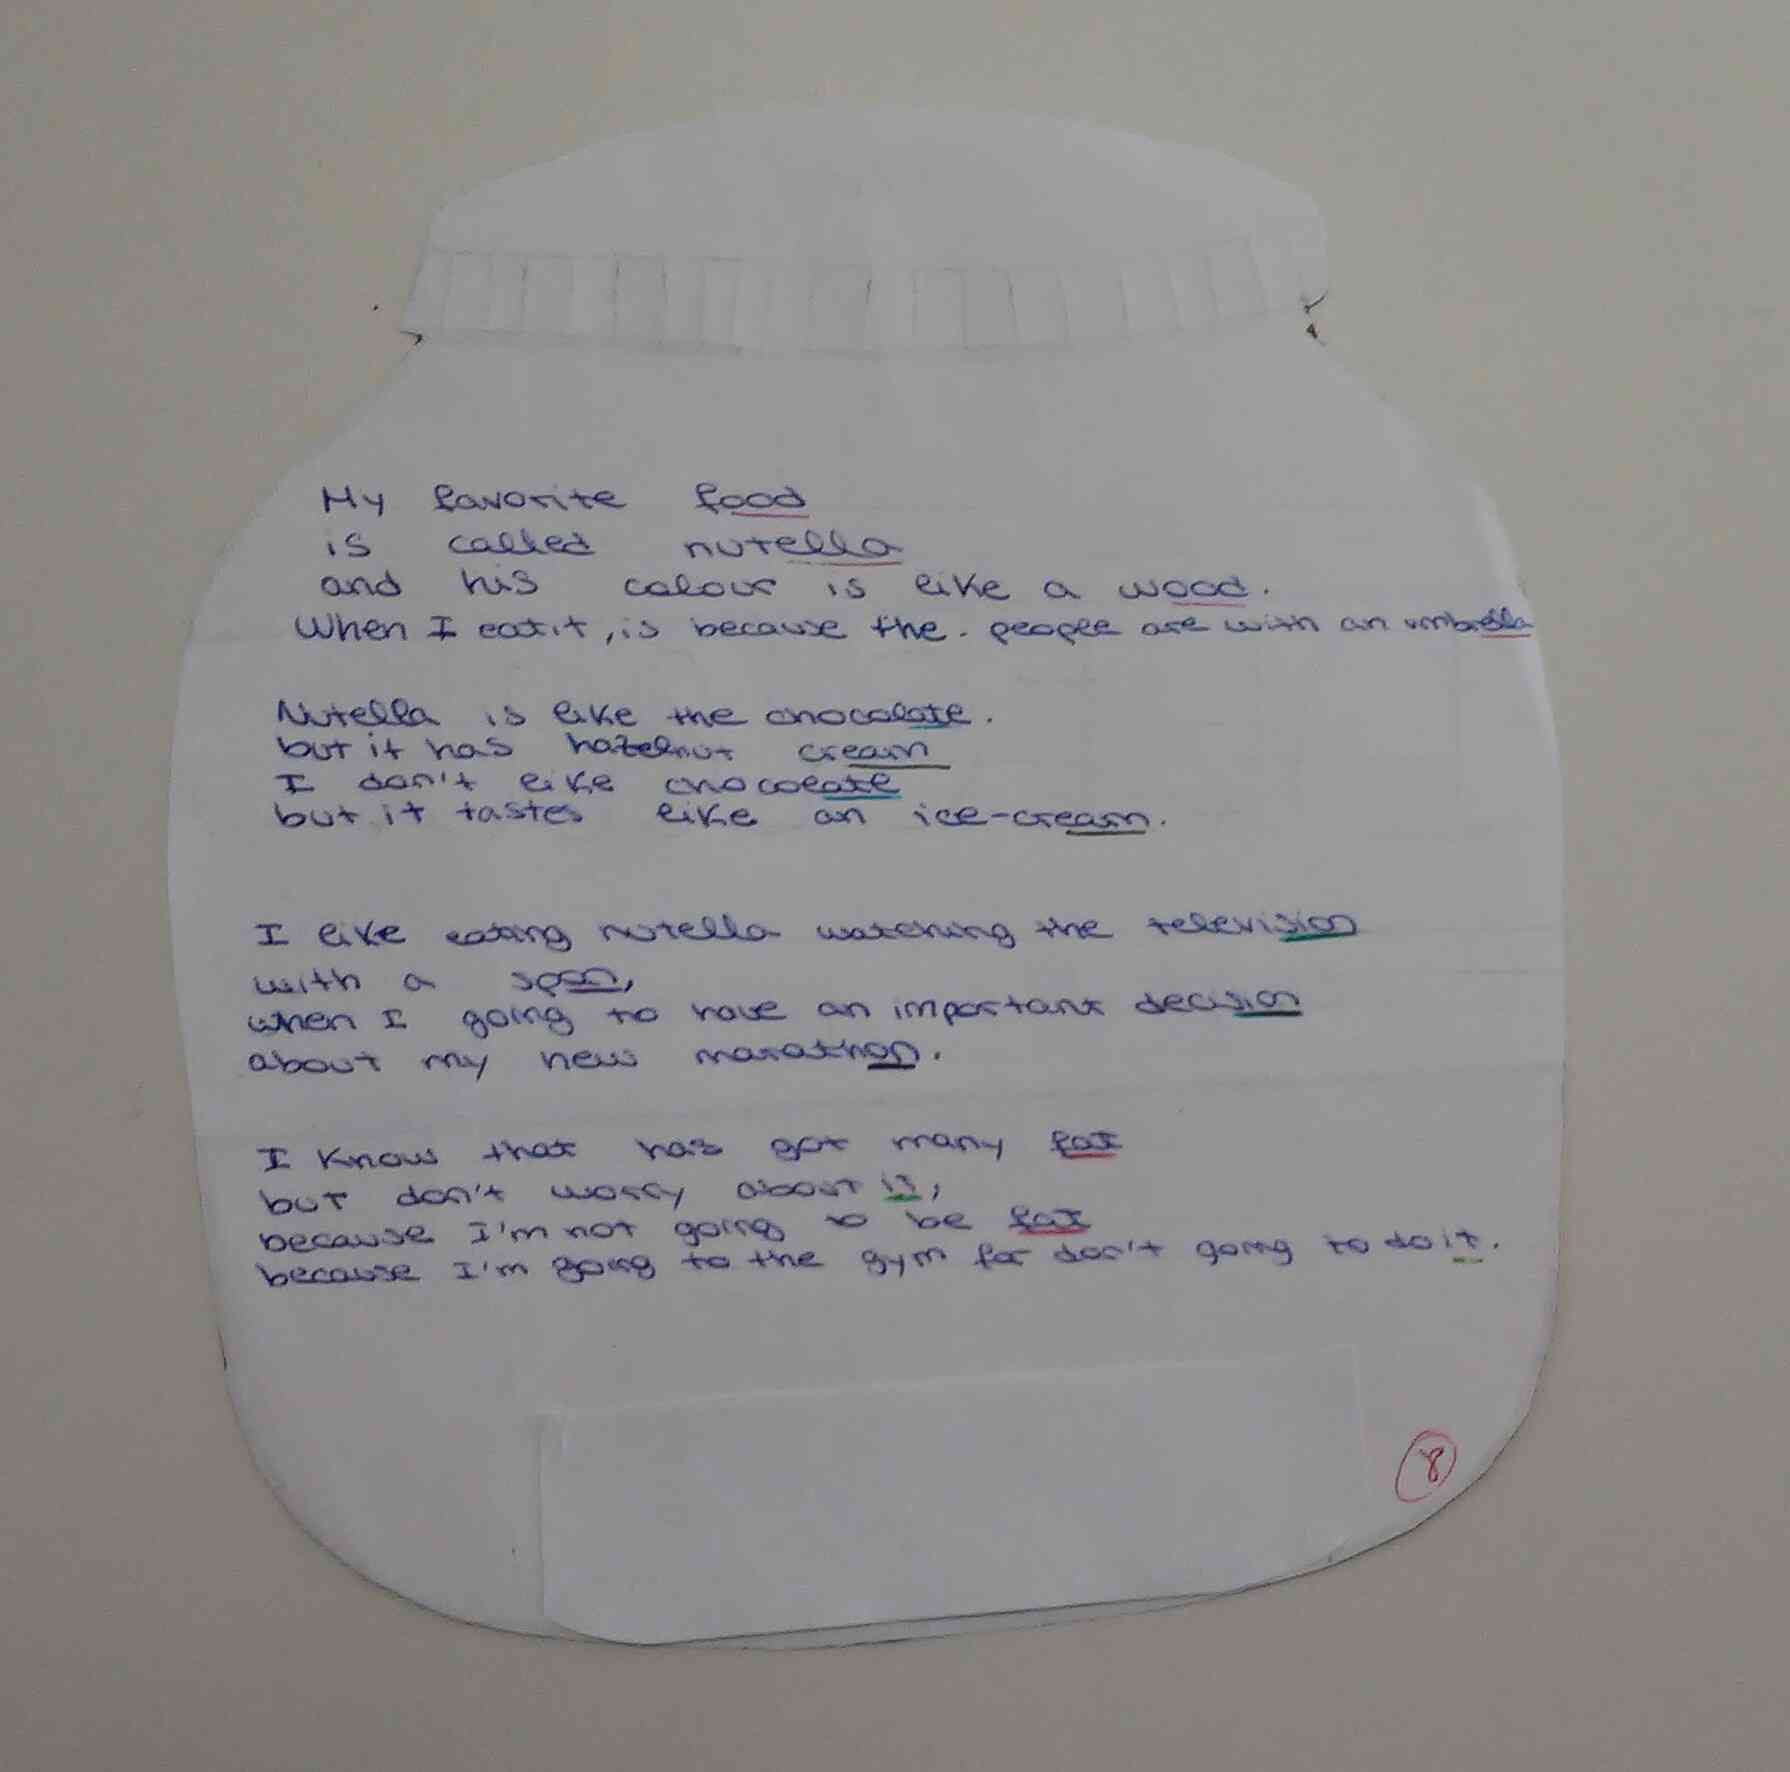 My favorite food
is called nutella
and his colour is like a wood.
When I eat it, is because the. people are with an umbrella
Nutella is like the chocolate.
but it has hazelnut cream
I don't like chocolate
but it tastes like an ice-cream.
I like eating nutella watching the television
with a spon,
when I going to have an important decision
about my new marathon.
I know that has got many fat
but don't worry about it,
because I'm not going to be fat
because I'm going to the gym for don't going to do it.
8